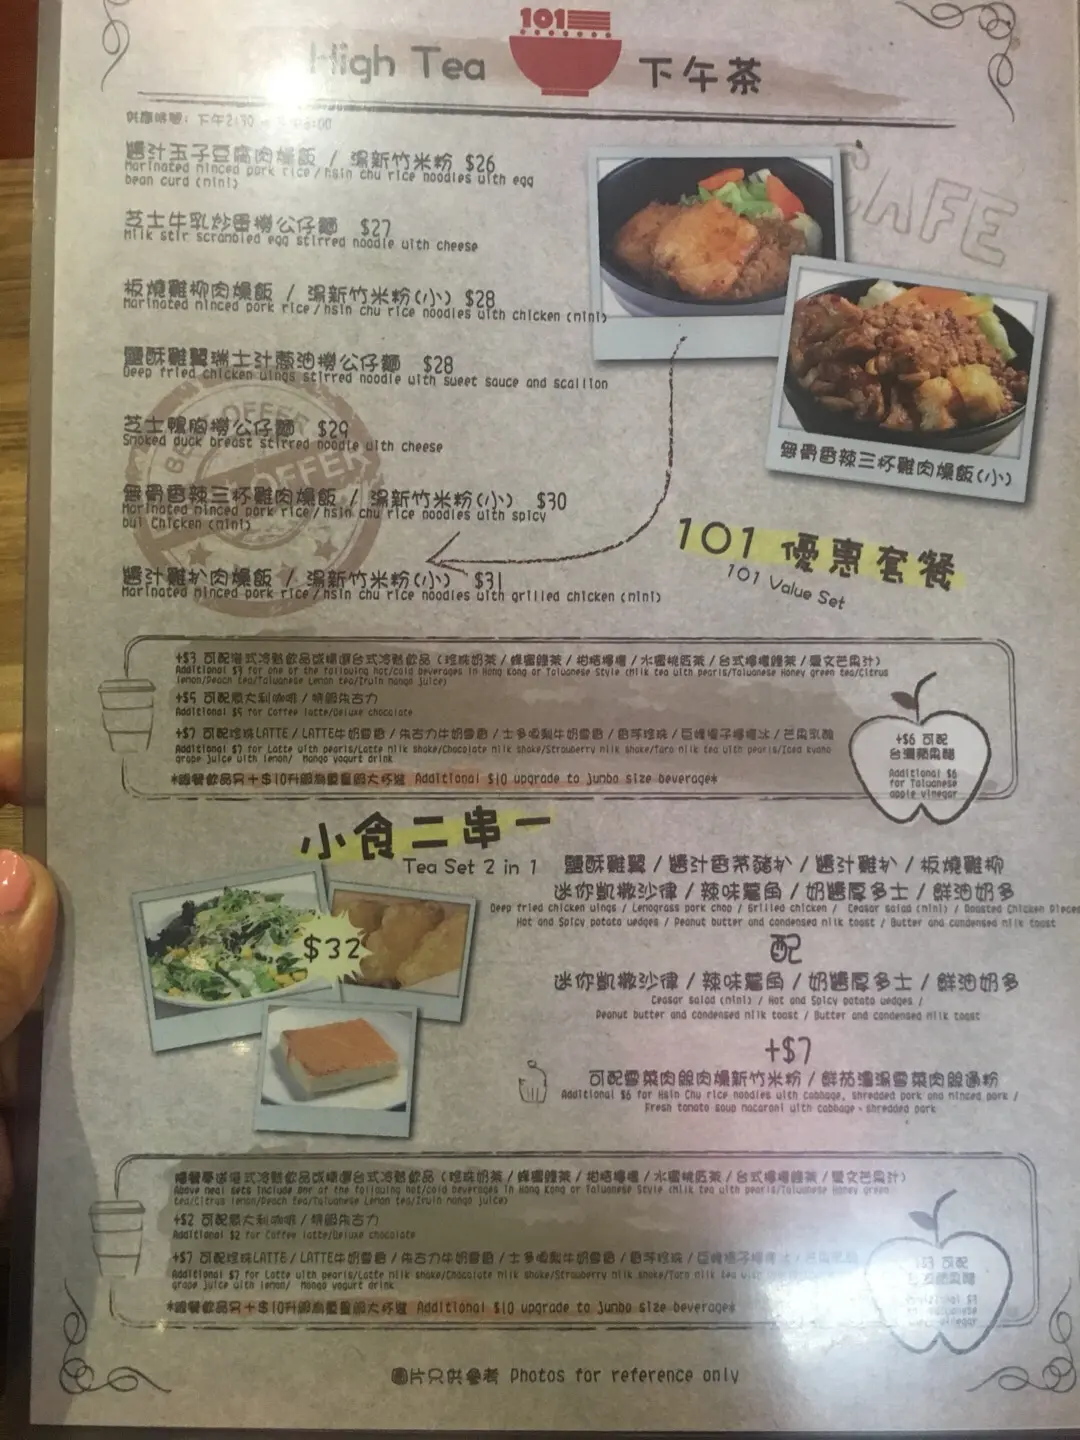 101
High Tea 下午茶
醬汁玉子豆腐肉燥飯 / 湯新竹米粉 $26
Marinated minced pork rice/hsin chu rice noodles with egg
bean curd (mini)
芝士牛乳炒蛋撈公仔麵 $27
Milk stir scrambled egg stirred noodle with cheese
板燒雞柳肉燥飯 / 湯新竹米粉(小) $28
Marinated minced pork rice/hsin chu rice noodles with chicken (mini)
鹽酥雞翼瑞士汁蔥油撈公仔麵 $28
Deep fried chicken wings stirred noodle with sweet sauce and scallion
芝士鴨胸撈公仔麵 $29
Smoked duck breast stirred noodle with cheese
無骨香辣三杯雞肉燥飯 / 湯新竹米粉(小) $30
Marinated minced pork rice/hsin chu rice noodles with spicy
bui Chicken (mini)
醬汁雞扒肉燥飯 / 湯新竹米粉(小) $31
Marinated minced pork rice/hsin chu rice noodles with grilled chicken (mini)
CAFE
無骨香辣三杯雞肉燥飯(小)
BEST OFFER
101 優惠套餐
101 Value Set
+$3 可配港式冷熱飲品或精選台式冷熱飲品 (珍珠奶茶/蜂蜜綠茶/柑桔檸檬/水蜜桃紅茶/台式檸檬綠茶/愛文芒果汁)
Additional $3 for one of the following hot/cold beverages in Hong Kong or Taiwanese Style (milk tea with pearls/Taiwanese Honey green tea/Citrus
lemon/Peach tea/Taiwanese Lemon tea/Irwin mango juice)
+$5 可配意大利咖啡/特濃朱古力
Additional $5 for Coffee latte/Deluxe chocolate
+$7 可配珍珠LATTE/LATTE牛奶雪魯/朱古力牛奶雪魯/士多啤梨牛奶雪魯/香芋珍珠/巨峰提子檸檬冰/芒果乳酪
Additional $7 for Latte with pearls/Latte milk shake/Chocolate milk shake/Strawberry milk shake/Taro milk tea with pearls/Iced kyoho
grape juice with lemon/ Mango yogurt drink
*跟餐飲品另+$10升級為重量級大杯裝 Additional $10 upgrade to jumbo size beverage*
+$6 可配
台灣蘋果醋
Additional $6
for Taiwanese
apple vinegar
小食二串一
Tea Set 2 in 1
$32
鹽酥雞翼/醬汁香茅豬扒/醬汁雞扒/板燒雞柳
迷你凱撒沙律/辣味薯角/奶醬厚多士/鮮油奶多
Deep fried chicken wings / Lemograss pork chop / Grilled chicken / Ceasar salad (mini) / Roasted Chicken Pieces
Hot and Spicy potato wedges / Peanut butter and condensed milk toast / Butter and condensed milk toast
配
迷你凱撒沙律/辣味薯角/奶醬厚多士/鮮油奶多
Ceasar salad (mini) / Hot and Spicy potato wedges /
Peanut butter and condensed milk toast / Butter and condensed milk toast
+$7
可配雪菜肉絲肉燥新竹米粉/鮮茄濃湯雪菜肉絲通粉
Additional $6 for Hsin Chu rice noodles with cabbage, shredded pork and minced pork /
Fresh tomato soup macaroni with cabbage、shredded pork
Above meal sets include one of the following hot/cold beverages in Hong Kong or Taiwanese Style (milk tea with pearls/Taiwanese Honey green
tea/Citrus lemon/Peach tea/Taiwanese Lemon tea/Irwin mango juice)
+$2 可配意大利咖啡/特濃朱古力
Additional $2 for Coffee latte/Deluxe chocolate
+$7 可配珍珠LATTE/LATTE牛奶雪魯/朱古力牛奶雪魯/士多啤梨牛奶雪魯/香芋珍珠/巨峰提子檸檬冰
Additional $7 for Latte with pearls/Latte milk shake/Chocolate milk shake/Strawberry milk shake/Taro milk tea with
grape juice with lemon/ Mango yogurt drink
*跟餐飲品另+$10升級為重量級大杯裝 Additional $10 upgrade to jumbo size beverage*
圖片只供參考 Photos for reference only